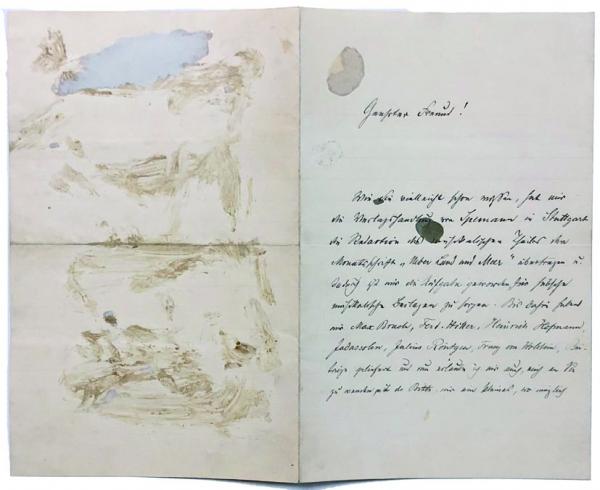 Geehrter Freund!
Wie Sie vielleicht schon wissen, hat mir
die Verlagshandlung von Spemann in Stuttgart
die Redaction des musikalischen Theiles der
Monatsschrift „Ueber Land und Meer" übertragen u.
dadurch ist mir die Aufgabe geworden für hübsche
musikalische Beilagen zu sorgen. Bis dahin haben
mir Max Bruch, Ferd. Hiller, Heinrich Hofmann,
Jadassohn, Julius Röntgen, Franz von Holstein, Bei-
träge geliefert und nun erlaube ich mir auch, mich an Sie
zu wenden mit der Bitte, mir ein kleines, wo möglich